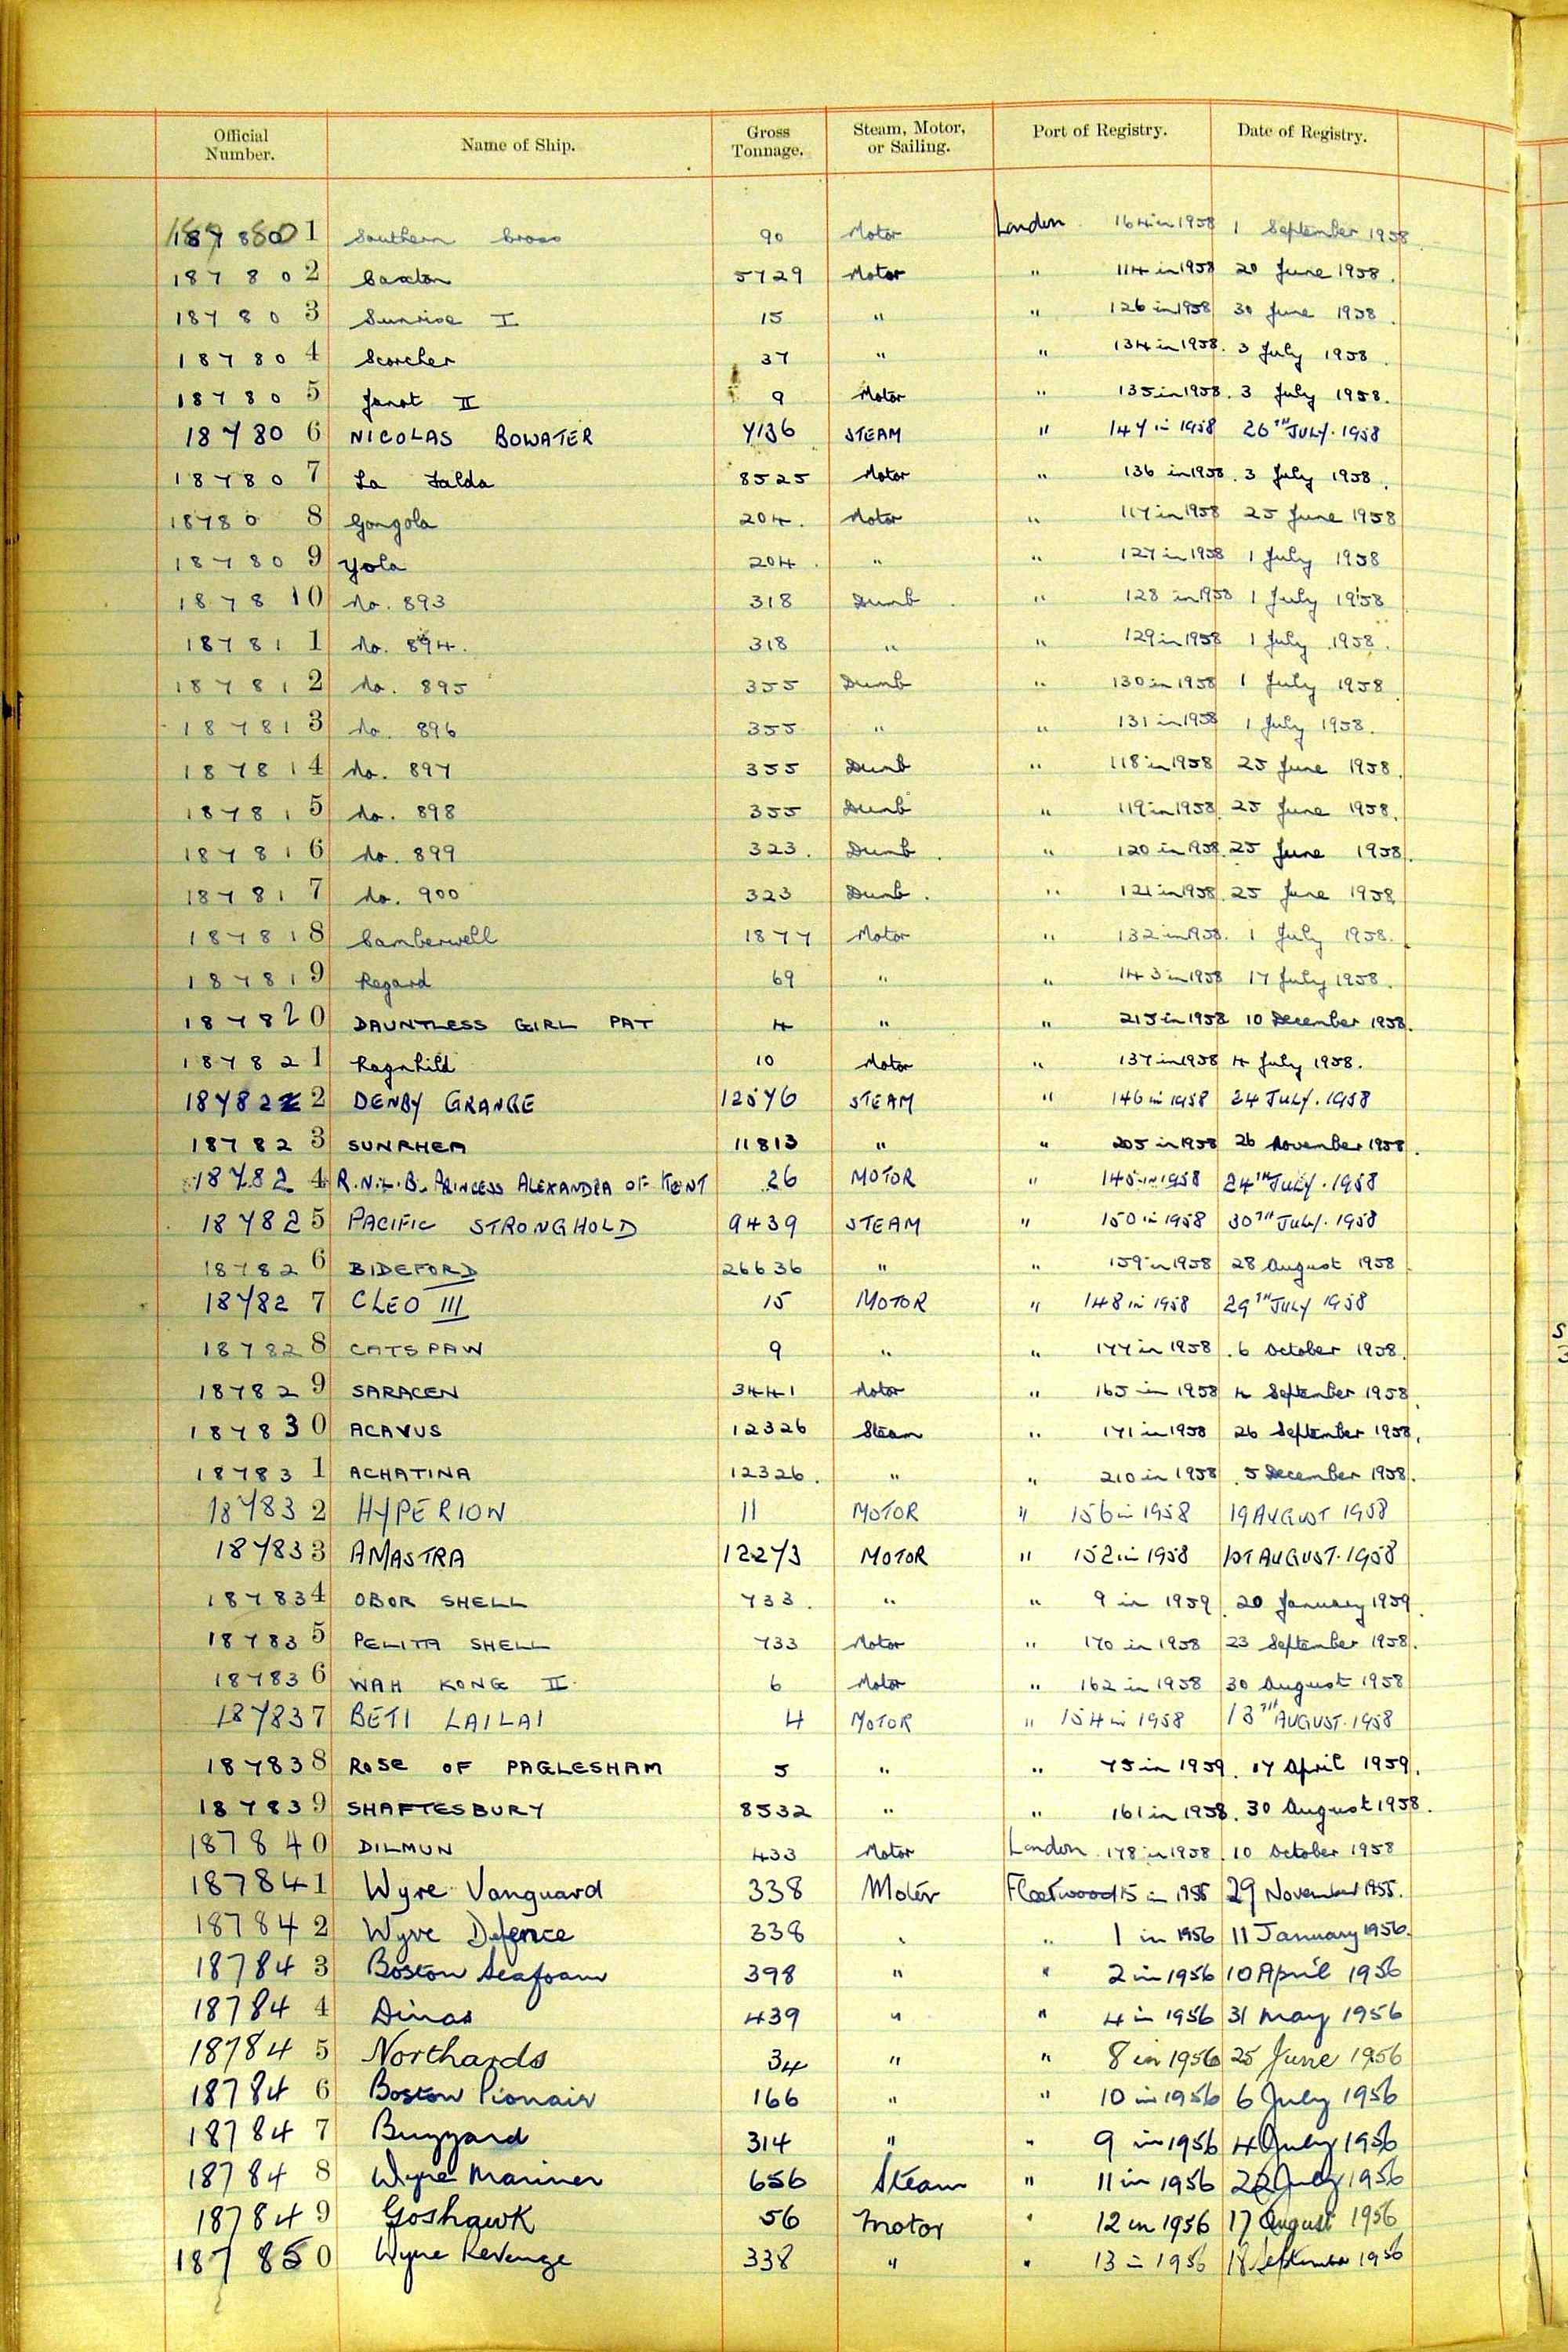 Official Number. Name of Ship. Gross Tonnage. Steam, Motor, or Sailing. Port of Registry. Date of Registry.
187801 Southern Cross 90 Motor London 164 in 1958 1 September 1958
187802 Caxton 5729 Motor " 114 in 1958 20 June 1958.
187803 Sunrise I 15 " " 126 in 1958 30 June 1958.
187804 Scorcher 37 " " 134 in 1958. 3 July 1958.
187805 Janot II 9 Motor " 135 in 1958. 3 July 1958.
187806 NICOLAS BOWATER 7136 STEAM " 147 in 1958 26TH JULY. 1958
187807 La Falda 8525 Motor " 136 in 1958. 3 July 1958.
187808 Gongola 204. Motor " 117 in 1958 25 June 1958
187809 Yola 204. " " 127 in 1958 1 July 1958
187810 No. 893 318 Dumb. " 128 in 1958 1 July 1958
187811 No. 894. 318 " " 129 in 1958 1 July 1958.
187812 No. 895 355 Dumb " 130 in 1958 1 July 1958
187813 No. 896 355 " " 131 in 1958 1 July 1958.
187814 No. 897 355 Dumb " 118 in 1958 25 June 1958.
187815 No. 898 355 Dumb " 119 in 1958. 25 June 1958.
187816 No. 899 323. Dumb. " 120 in 1958. 25 June 1958.
187817 No. 900 323 Dumb. " 121 in 1958. 25 June 1958
187818 Camberwell 1877 Motor " 132 in 1958. 1 July 1958.
187819 Regard 69 " " 143 in 1958 17 July 1958.
187820 DAUNTLESS GIRL PAT 4 " " 215 in 1958 10 December 1958.
187821 Ragnhild 10 Motor " 137 in 1958 4 July 1958.
187822 DENBY GRANGE 12576 STEAM " 146 in 1958 24 JULY. 1958
187823 SUNRHEA 11813 " " 205 in 1958 26 November 1958.
187824 R.N.L.B. PRINCESS ALEXANDRA OF KENT 26 MOTOR " 145 in 1958 24TH JULY. 1958
187825 PACIFIC STRONGHOLD 9439 STEAM " 150 in 1958 30TH JULY. 1958
187826 BIDEFORD 26636 " " 159 in 1958 28 August 1958
187827 CLEO III 15 MOTOR " 148 in 1958 29TH JULY 1958
187828 CATSPAW 9 " " 177 in 1958. 6 October 1958.
187829 SARACEN 3441 Motor " 165 in 1958 4 September 1958
187830 ACAVUS 12326 Steam " 171 in 1958 26 September 1958.
187831 ACHATINA 12326. " " 210 in 1958. 5 December 1958.
187832 HYPERION 11 MOTOR " 156 in 1958 19 AUGUST 1958
187833 AMASTRA 12273 MOTOR " 152 in 1958 1ST AUGUST. 1958
187834 OBOR SHELL 733. " " 9 in 1959. 20 January 1959.
187835 PELITA SHELL 733 Motor " 170 in 1958 23 September 1958.
187836 WAH KONG II 6 Motor " 162 in 1958 30 August 1958
187837 BETI LAILAI 4 MOTOR " 154 in 1958 13TH AUGUST. 1958
187838 ROSE OF PAGLESHAM 5 " " 75 in 1959. 17 April 1959.
187839 SHAFTESBURY 8532 " " 161 in 1958. 30 August 1958.
187840 DILMUN 433 Motor London 178 in 1958. 10 October 1958
187841 Wyre Vanguard 338 Motor Fleetwood 15 in 1955 29 November 1955.
187842 Wyre Defence 338 " " 1 in 1956 11 January 1956.
187843 Boston Seafoam 398 " " 2 in 1956 10 April 1956
187844 Dinas 439 " " 4 in 1956 31 May 1956
187845 Northards 34 " " 8 in 1956 25 June 1956
187846 Boston Pionair 166 " " 10 in 1956 6 July 1956
187847 Buzzard 314 " " 9 in 1956 4 July 1956
187848 Wyre Mariner 656 Steam " 11 in 1956 July 1956
187849 Goshawk 56 Motor " 12 in 1956 17 August 1956
187850 Wyre Revenge 338 " " 13 in 1956 18 September 1956